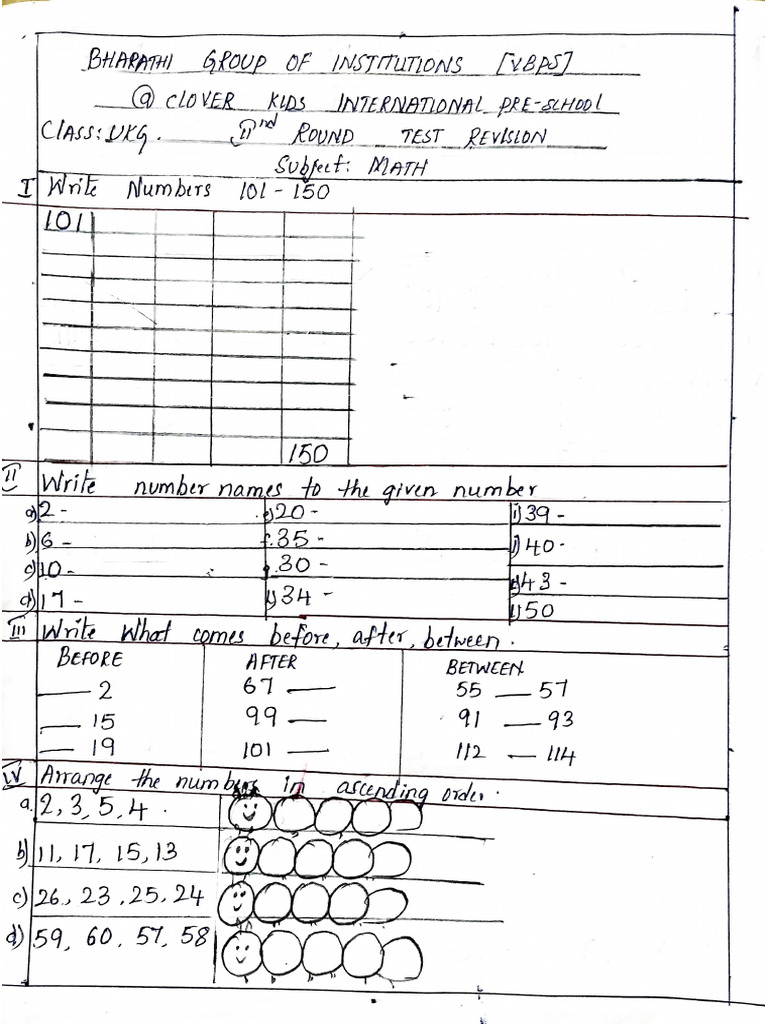 BHARATHI GROUP OF INSTITUTIONS [VBPS]
@ CLOVER KIDS INTERNATIONAL PRE-SCHOOL
CLASS: UKG. IInd ROUND TEST REVISION
Subject: MATH
I Write Numbers 101 - 150
101
150
II Write number names to the given number
a) 2 - e) 20 - i) 39 -
b) 6 - f. 35 - j) 40 -
c) 10 - g. 30 - k) 43 -
d) 17 - h) 34 - l) 50
III Write What comes before, after, between.
BEFORE AFTER BETWEEN
___ 2 67 ___ 55 ___ 57
___ 15 99 ___ 91 ___ 93
___ 19 101 ___ 112 ___ 114
IV Arrange the numbers in ascending order.
a. 2, 3, 5, 4.
b) 11, 17, 15, 13
c) 26, 23, 25, 24
d) 59, 60, 57, 58